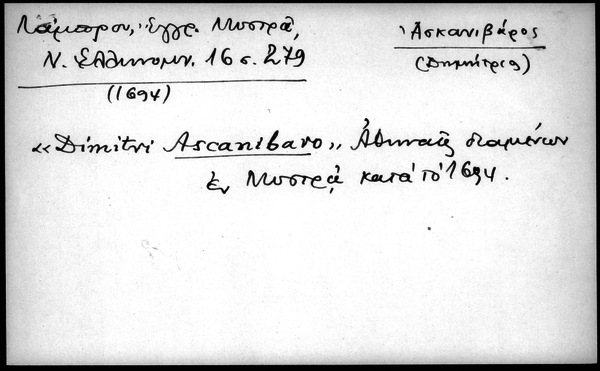 Λάμπρου, Έγγρ. Μυστρᾶ,
Ν. Ἑλληνομν. 16 σ. 279
(1694)
Ἀσκανιβάρος
(Δημήτριος)
«Dimitri Ascanibaro», Ἀθηναῖος διαμένων
ἐν Μυστρᾷ κατὰ τὸ 1694.